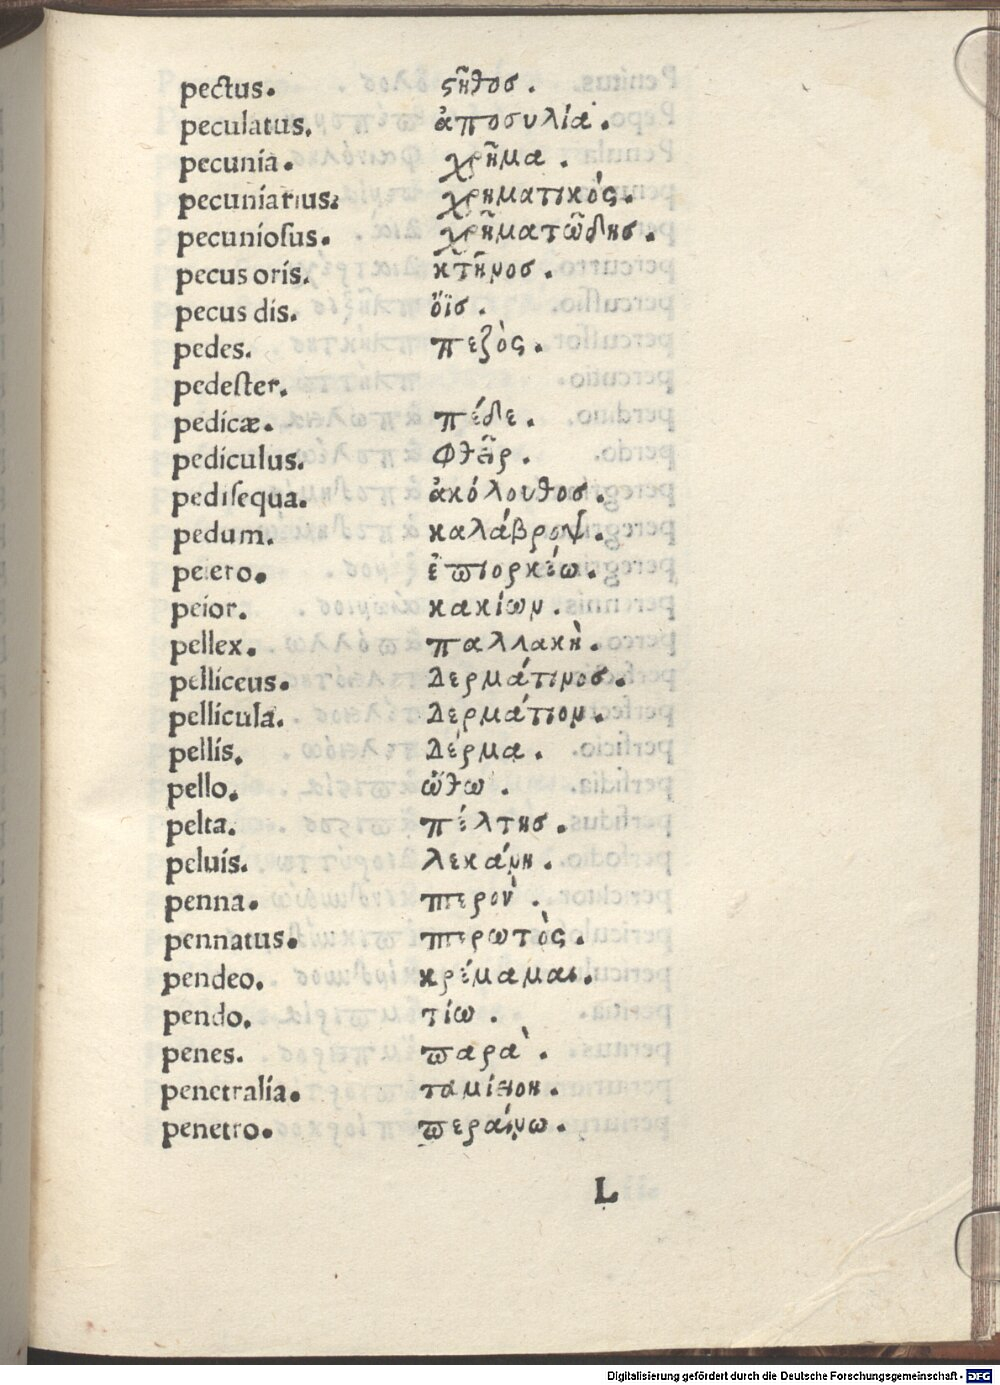 pectus. ϛῆθοσ.
peculatus. ἀποσυλία.
pecunia. χρῆμα.
pecuniarius. χρηματικός.
pecuniosus. χρῆματῶδησ.
pecus oris. κτῆνοσ.
pecus dis. ὄϊσ.
pedes. πεζὸς.
pedester.
pedicæ. πέδε.
pediculus. φθεῖρ.
pedisequa. ἀκόλουθοσ.
pedum. καλάβρον.
peiero. ἐπιορκέω.
peior. κακίων.
pellex. παλλακὴ.
pelliceus. Δερμάτινοσ.
pellicula. Δερμάτιον.
pellis. Δέρμα.
pello. ὤθω.
pelta. πέλτησ.
peluis. λεκάνη.
penna. πτερὸν.
pennatus. πτερωτὸς.
pendeo. κρέμαμαι.
pendo. τίω.
penes. παρὰ.
penetralia. ταμίειον.
penetro. περαίνω.
L
Digitalisierung gefördert durch die Deutsche Forschungsgemeinschaft - DFG